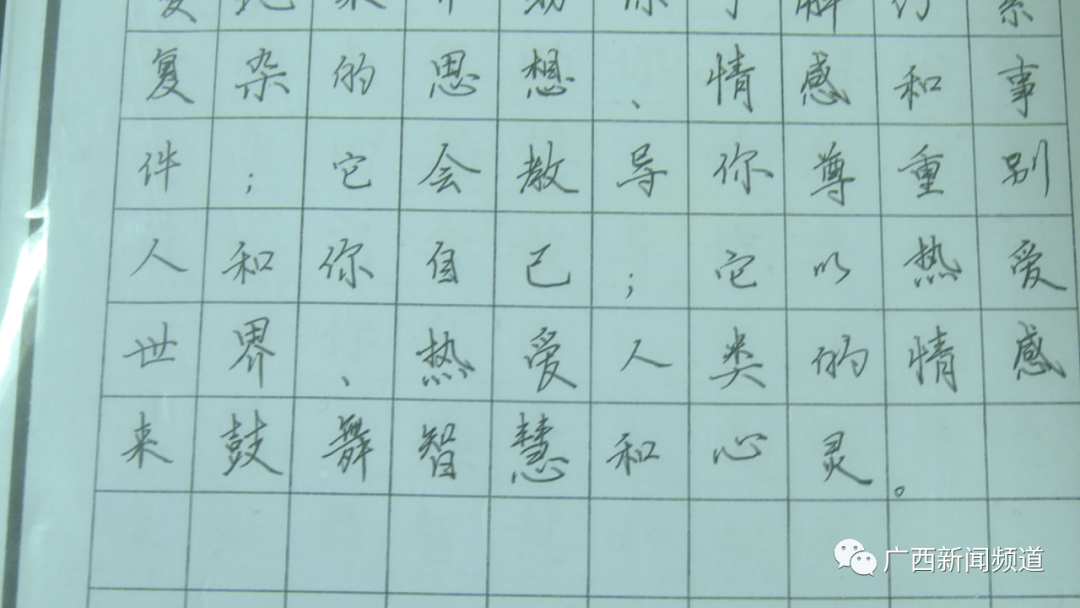 解
复杂的思想、情感和事
件；它会教导你尊重别
人和你自己；它以热爱
世界、热爱人类的情感
来鼓舞智慧和心灵。
广西新闻频道